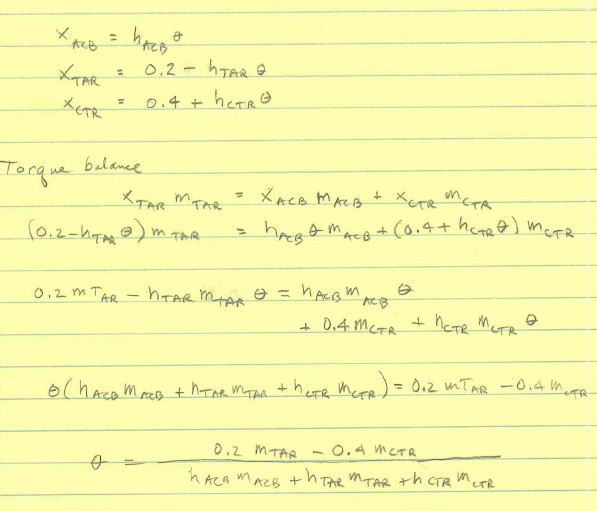 x_ACB = h_ACB θ
x_TAR = 0.2 - h_TAR θ
x_CTR = 0.4 + h_CTR θ
Torque balance
x_TAR m_TAR = x_ACB m_ACB + x_CTR m_CTR
(0.2 - h_TAR θ) m_TAR = h_ACB θ m_ACB + (0.4 + h_CTR θ) m_CTR
0.2 m_TAR - h_TAR m_TAR θ = h_ACB m_ACB θ
+ 0.4 m_CTR + h_CTR m_CTR θ
θ (h_ACB m_ACB + h_TAR m_TAR + h_CTR m_CTR) = 0.2 m_TAR - 0.4 m_CTR
θ = (0.2 m_TAR - 0.4 m_CTR) / (h_ACB m_ACB + h_TAR m_TAR + h_CTR m_CTR)